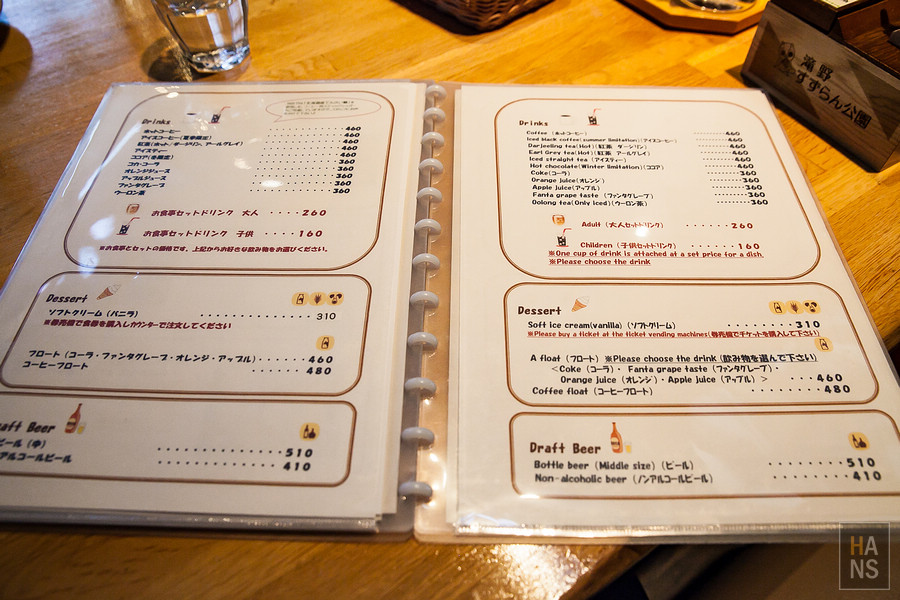 Drinks
ホットコーヒー ・・・ 460
アイスコーヒー(夏季限定) ・・・ 460
紅茶(ホット/ダージリン、アールグレイ) ・・・ 460
アイスティー ・・・ 460
ココア(冬限定) ・・・ 460
コカ・コーラ ・・・ 360
オレンジジュース ・・・ 360
アップルジュース ・・・ 360
ファンタグレープ ・・・ 360
ウーロン茶 ・・・ 360
お食事セットドリンク 大人 ・・・・・260
お食事セットドリンク 子供 ・・・・・160
※お食事とセットの価格です。上記からお好きな飲み物をお選びください。
Dessert
ソフトクリーム(バニラ) ・・・ 310
※券売機で食券を購入しカウンターで注文してください
フロート(コーラ・ファンタグレープ・オレンジ・アップル)・・・・・・460
コーヒーフロート ・・・ 480
aft Beer
ビール(中) ・・・ 510
アルコールビール ・・・ 410
Drinks
Coffee (ホットコーヒー) ・・・ 460
Iced black coffee(summer limitation)(アイスコーヒー) ・・・ 460
Darjeeling tea(Hot)(紅茶 ダージリン) ・・・ 460
Earl Grey tea(Hot)(紅茶 アールグレイ) ・・・ 460
Iced straight tea (アイスティー) ・・・ 460
Hot chocolate(Winter limitation)(ココア) ・・・ 460
Coke(コーラ) ・・・ 360
Orange juice(オレンジ) ・・・ 360
Apple juice(アップル) ・・・ 360
Fanta grape taste (ファンタグレープ) ・・・ 360
Oolong tea(Only Iced)(ウーロン茶) ・・・ 360
Adult (大人セットドリンク) ・・・ 260
Children (子供セットドリンク) ・・・ 160
※One cup of drink is attached at a set price for a dish.
※Please choose the drink
Dessert
Soft ice cream(vanilla) (ソフトクリーム) ・・・ 310
※Please buy a ticket at the ticket vending machines(券売機でチケットを購入して下さい)
A float (フロート) ※Please choose the drink (飲み物を選んで下さい)
<Coke (コーラ)・ Fanta grape taste (ファンタグレープ)・
Orange juice (オレンジ)・Apple juice (アップル) > ・・・・460
Coffee float (コーヒーフロート) ・・・ 480
Draft Beer
Bottle beer (Middle size) (ビール) ・・・ 510
Non-alcoholic beer (ノンアルコールビール) ・・・ 410
滝野
すずらん公園
HANS